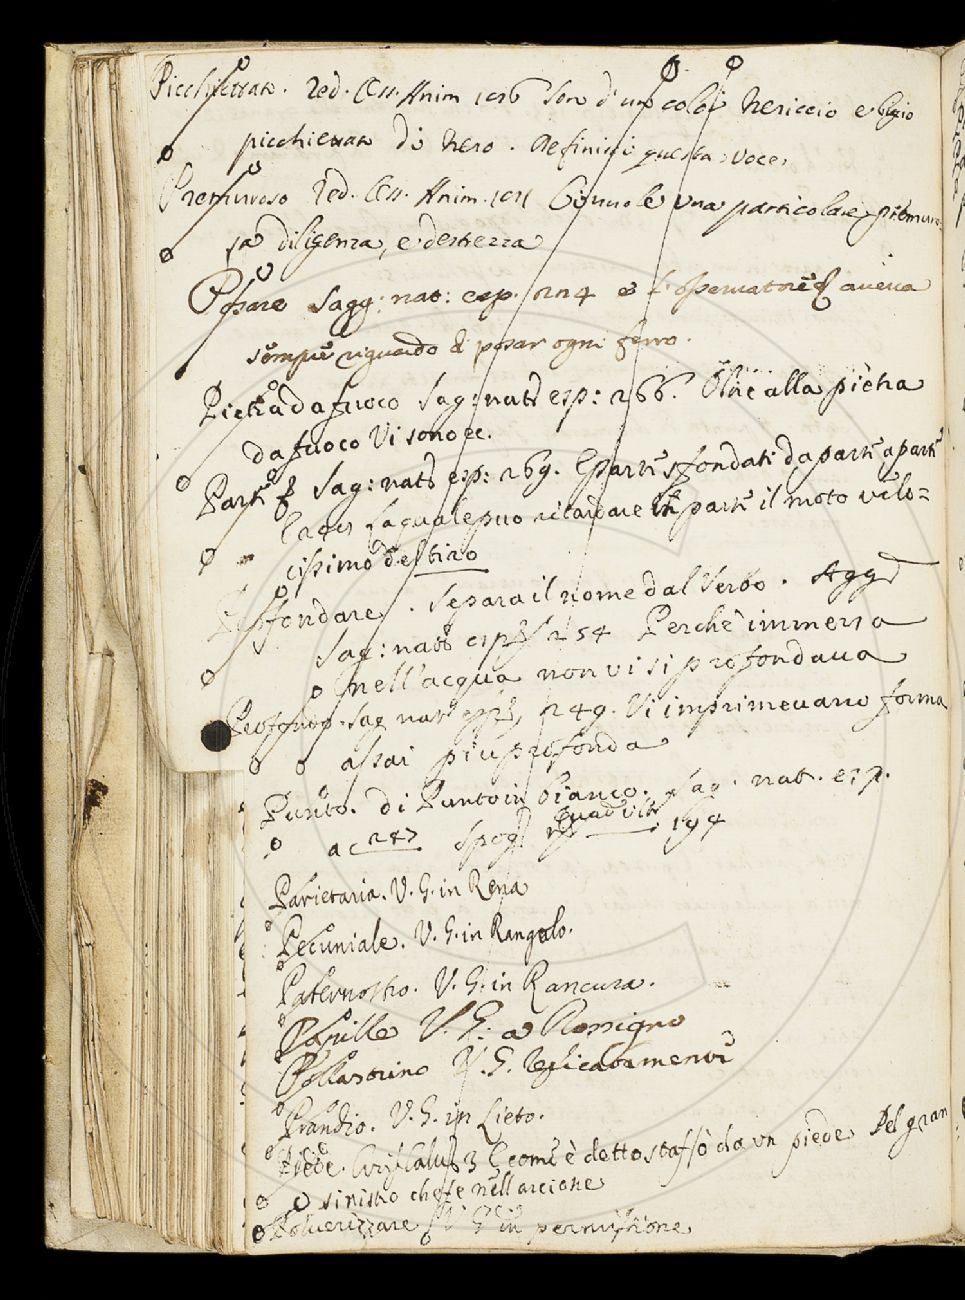 Picchiettato. Red. Oss. Anim 156 Son d'un color nericcio e bigio
picchiettato di nero. Definirsi questa voce
Premuroso Red. Oss. Anim. 151 Ci vuole una particolare premuro-
sa diligenza, e destrezza
Posare Sagg: nat: esp. 224 e l'operatore avena
sempre riguardo di posar ogni ferro.
Pietra da fuoco Sag: nat: esp: 266. Oltre alla pietra
da fuoco Vi sono ec.
Parte Sag: nat: esp: 269. sfondati da parte a parte
la qual può ritardare in parte il moto velo=
cissimo del tiro
Profondare. Separa il nome dal Verbo. Agg
Sag: nat: esp 254 Perchè immersa
nell'acqua non vi si profondava
Profondo. Sag nat esp, 249. Vi imprimevano forma
assai più profonda
Punto. di Punto in bianco. Sag. nat. esp.
a c 247 Spog. 194
Parietaria. V. S. in Rena
Pecuniale. V. S. in Rangolo.
Paternostro. V. S. in Rancura.
Pupille V. S. a Rossigno
Pollastrino V. S. Replicatamente
Prandio. V. S. in Lieto.
Piede. 3 come è detto staffo da un piede Del gran
sinistro che fe nell'arcione
Polverizzare V. S. in permistione